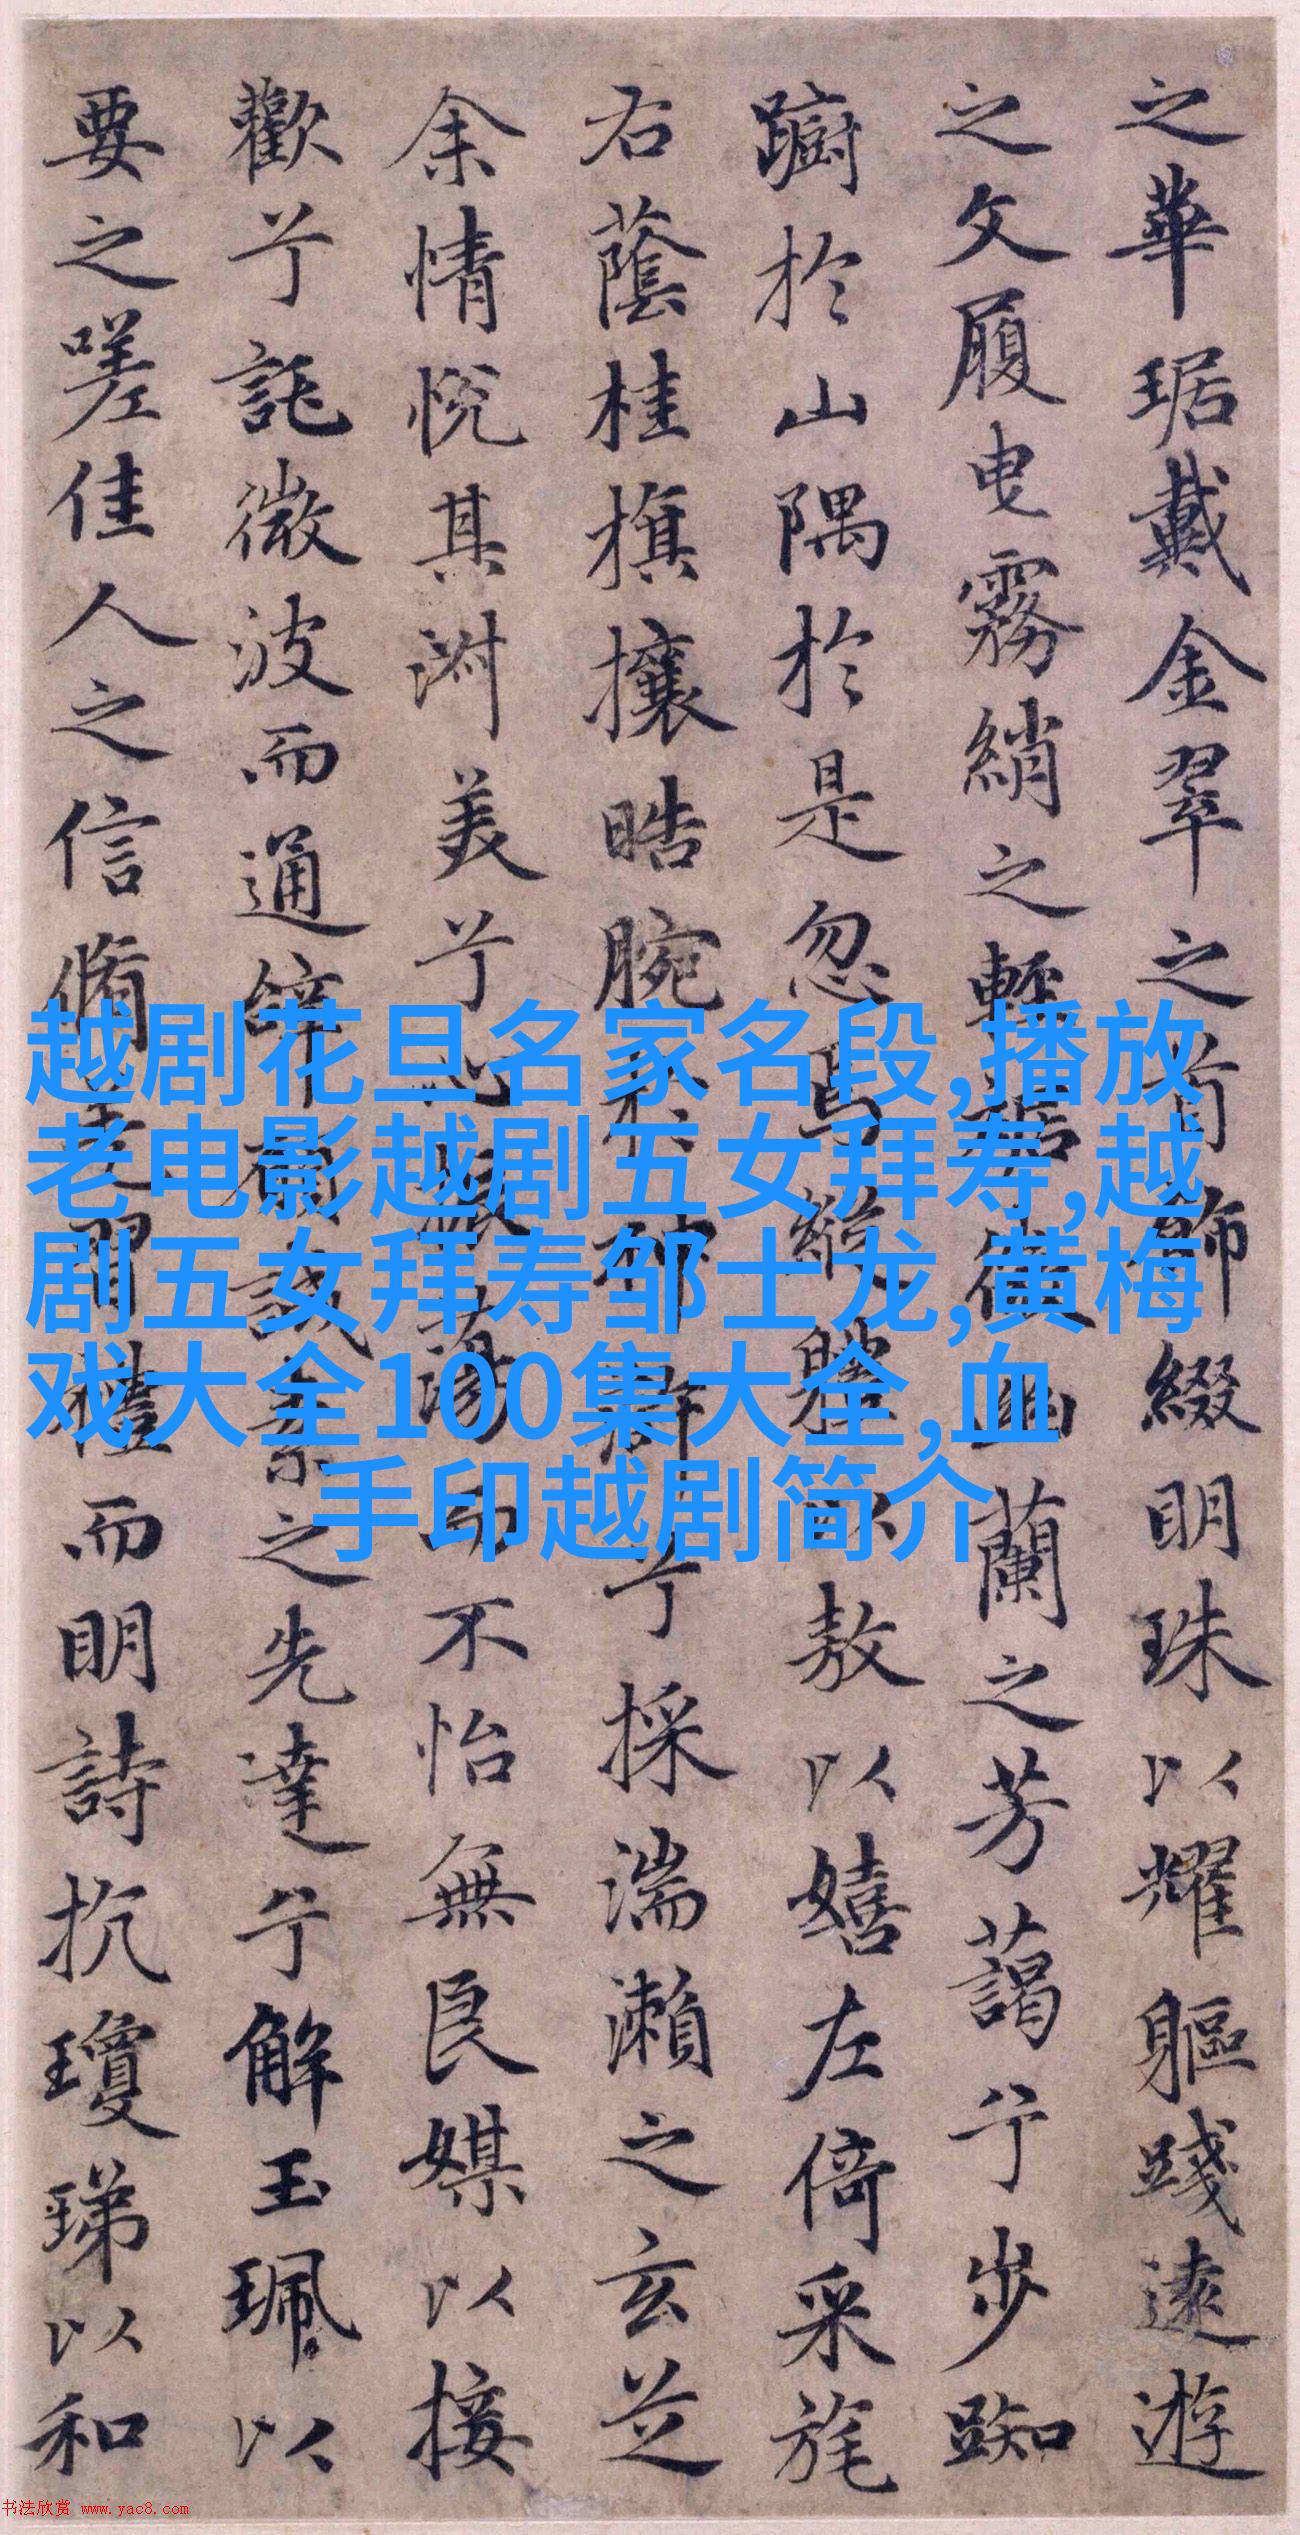 之華琚戴金翠之首飾綴明珠以耀軀踐遠遊
之文履曳霧綃之輕裾微幽蘭之芳藹兮步踟
躕於山隅於是忽焉縱體以敖以嬉左倚采旄
右蔭桂旗攘晧腕於神滸兮採湍瀨之玄芝
余情悅其淑美兮心振蕩而不怡無良媒以接
歡兮託微波而通辭願誠素之先達兮解玉珮以
要之嗟佳人之信脩羌習禮而明詩抗瓊珶以和
越剧花旦名家名段,播放
老电影越剧五女拜寿,越
剧五女拜寿邹士龙,黄梅
戏大全100集大全,血
手印越剧简介
书法欣赏 www.yac8.com